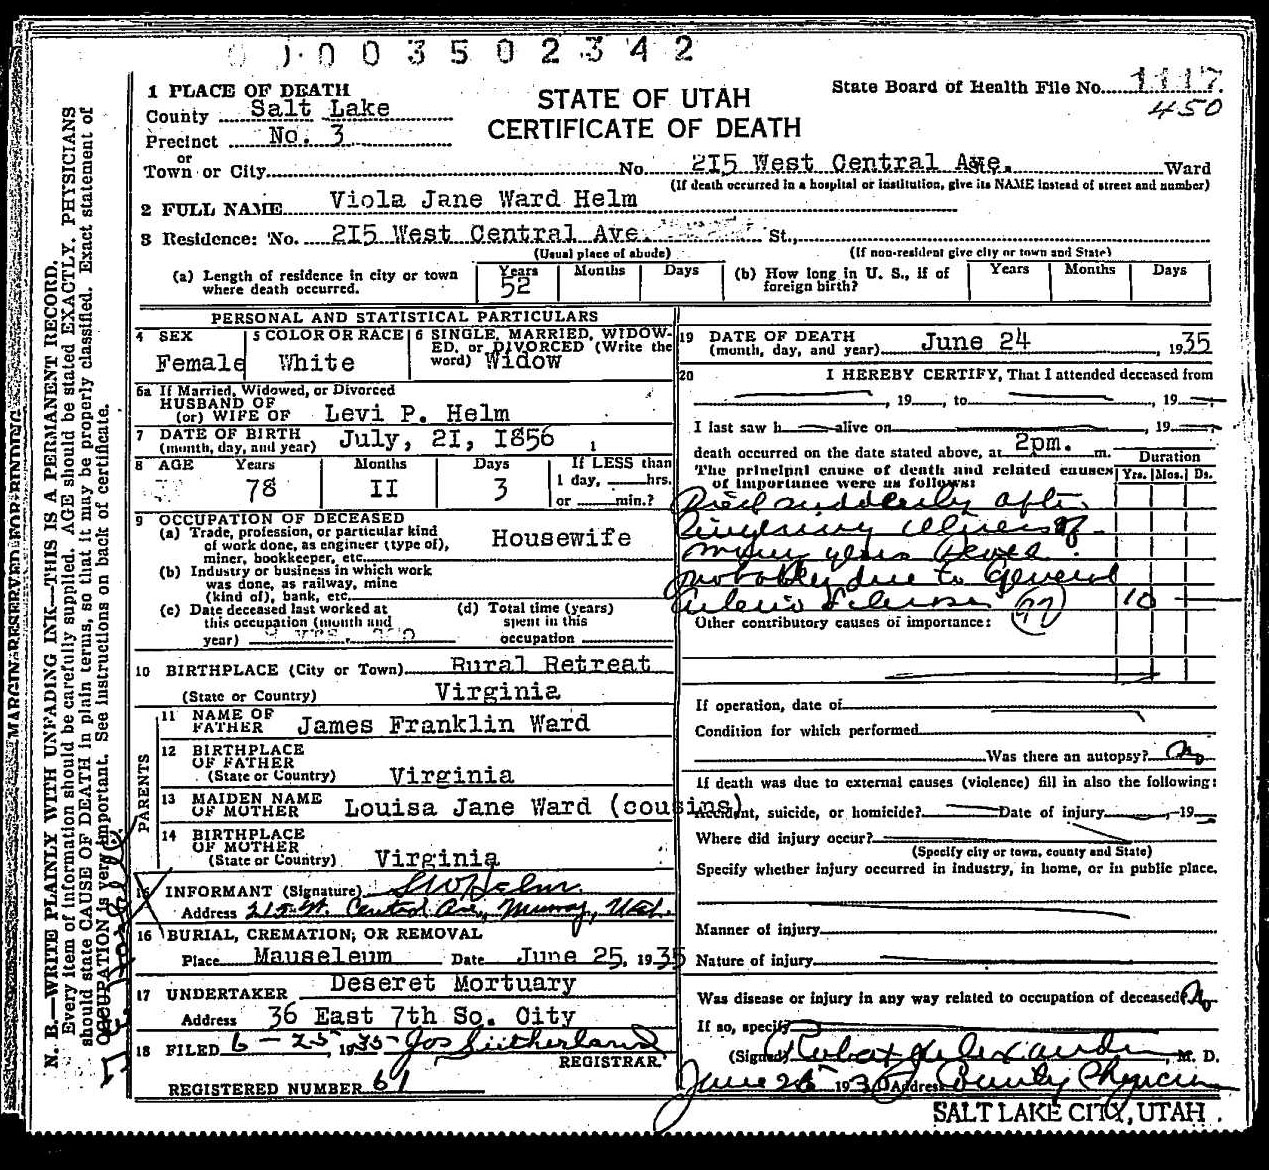 003502342
1 PLACE OF DEATH
County Salt Lake
Precinct No. 3
or
Town or City
STATE OF UTAH
CERTIFICATE OF DEATH
State Board of Health File No. 1117
450
No. 215 West Central Ave. Ward
(If death occurred in a hospital or institution, give its NAME instead of street and number)
2 FULL NAME Viola Jane Ward Helm
3 Residence: No. 215 West Central Ave. St.,
(Usual place of abude) (If non-resident give city or town and State)
(a) Length of residence in city or town where death occurred. Years 52 Months Days
(b) How long in U. S., if of foreign birth? Years Months Days
PERSONAL AND STATISTICAL PARTICULARS
4 SEX Female
5 COLOR OR RACE White
6 SINGLE, MARRIED, WIDOW-
ED, or DIVORCED (Write the
word) Widow
6a If Married, Widowed, or Divorced
HUSBAND OF
(or) WIFE OF Levi P. Helm
7 DATE OF BIRTH
(month, day, and year) July, 21, 1856
8 AGE Years 78 Months II Days 3
If LESS than
1 day, hrs.
or min.?
9 OCCUPATION OF DECEASED
(a) Trade, profession, or particular kind
of work done, as engineer (type of),
miner, bookkeeper, etc. Housewife
(b) Industry or business in which work
was done, as railway, mine
(kind of), bank, etc.
(c) Date deceased last worked at
this occupation (month and
year)
(d) Total time (years)
spent in this
occupation
10 BIRTHPLACE (City or Town) Rural Retreat
(State or Country) Virginia
PARENTS
11 NAME OF
FATHER James Franklin Ward
12 BIRTHPLACE
OF FATHER
(State or Country) Virginia
13 MAIDEN NAME
OF MOTHER Louisa Jane Ward (cousins)
14 BIRTHPLACE
OF MOTHER
(State or Country) Virginia
15 INFORMANT (Signature) Helm
Address 215 W. Central Ave, Murray, Utah.
16 BURIAL, CREMATION, OR REMOVAL
Place Mauseleum Date June 25, 1935
17 UNDERTAKER Deseret Mortuary
Address 36 East 7th So. City
18 FILED 6-25, 1935 Jos Sutherland
REGISTRAR.
REGISTERED NUMBER 61
19 DATE OF DEATH
(month, day, and year) June 24, 1935
20 I HEREBY CERTIFY, That I attended deceased from
, 19 , to , 19
I last saw h alive on , 19
death occurred on the date stated above, at 2pm. m.
The principal cause of death and related causes
of importance were as follows:
Duration
Yrs. Mos. Ds.
Died suddenly after
lingering illness of
many years
probably due to General
Arterio Sclerosis 97 10
Other contributory causes of importance:
If operation, date of
Condition for which performed
Was there an autopsy? No
If death was due to external causes (violence) fill in also the following:
Accident, suicide, or homicide? Date of injury , 19
Where did injury occur?
(Specify city or town, county and State)
Specify whether injury occurred in industry, in home, or in public place.
Manner of injury
Nature of injury
Was disease or injury in any way related to occupation of deceased? No
If so, specify
(Signed) Alexander, M. D.
June 1935 Address County Physician
SALT LAKE CITY, UTAH.
MARGIN RESERVED FOR BINDING
N. B.—WRITE PLAINLY WITH UNFADING INK—THIS IS A PERMANENT RECORD.
Every item of information should be carefully supplied. AGE should be stated EXACTLY. PHYSICIANS
should state CAUSE OF DEATH in plain terms, so that it may be properly classified. Exact statement of
OCCUPATION is very important. See instructions on back of certificate.